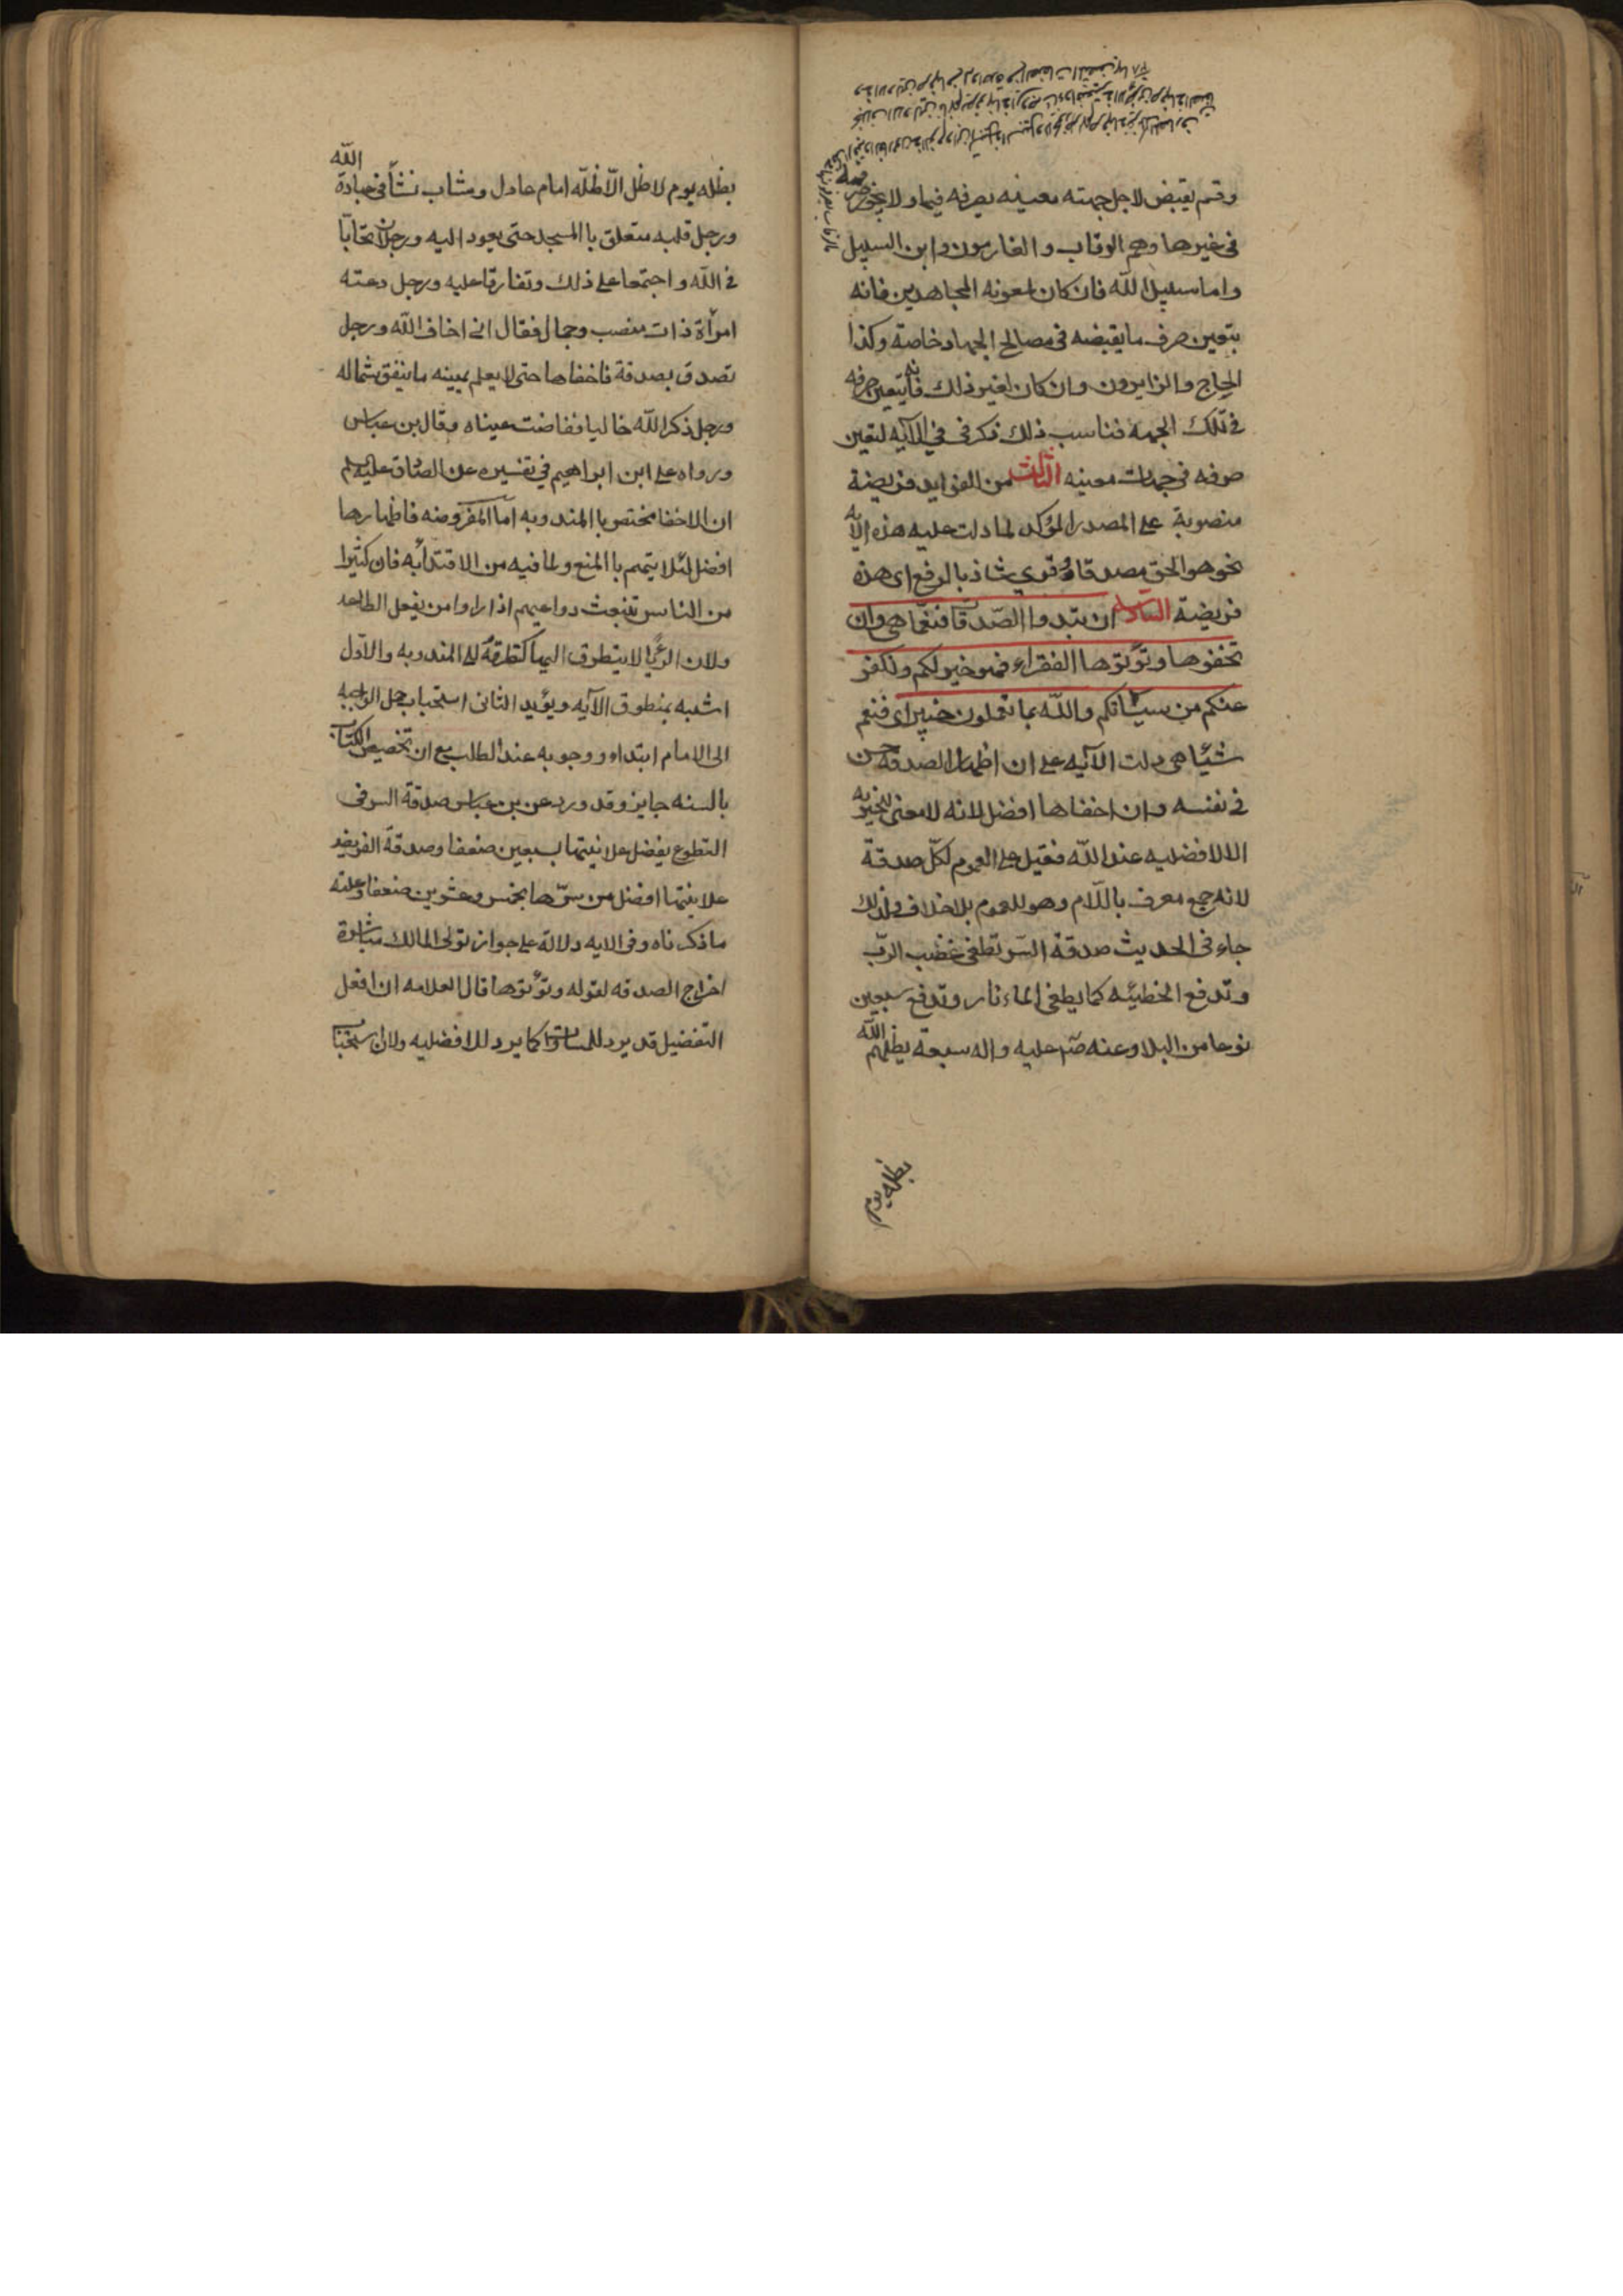 وقسم يقبض لاجل جهته معينه يصرفه فيها ولا يجوز صرفه
فى غيرها وهم الرقاب و الغارمون و ابن السبيل
واما سبيل الله فان كان لمعونه المجاهدين فانه
يتعين صرف ما يقبضه فى مصالح الجهاد خاصة وكذا
الحاج والزايرون وان كان لغير ذلك فانه يتعين صرفه
فى تلك الجهه فناسب ذلك ذكر فى فى الآيه لتعين
صرفه فى جهات معينه الثالث من الفوايد فريضة
منصوبة على المصدر المؤكد لما دلت عليه هذه الآيه
نحو هو الحق مصدقا وقرى شاذ بالرفع اى هذه
فريضة السادسة ان تبدوا الصّدقات فنعّما هى وان
تخفوها وتؤتوها الفقراء فهو خير لكم ونكفر
عنكم من سيّئاتكم والله بما تعملون خبير اى فنعم
شيئا هى دلت الآيه على ان اظهار الصدقه حسن
فى نفسه وان اخفاها افضل لانه لا معنى للخيريه
الا الافضليه عند الله فقيل على العموم لكلّ صدقة
لانه جمع معرف باللّام وهو للعموم بلا خلاف ولذلك
جاء فى الحديث صدقة السّر تطفى غضب الربّ
وتدفع الخطيئه كما يطفى الماء نار وتدفع سبعين
نوعا من البلا وعنه صّ عليه واله سبعة يظلهم الله
يظله يوم
يظله يوم لا ظل الّا ظلّه امام عادل وشاب نشأ فى عبادة الله
ورجل قلبه متعلق با المسجد حتى يعود اليه ورجلان تحابّا
فى الله و اجتمعا على ذلك وتفارقا عليه ورجل دعته
امرأة ذات منصب وجمال فقال انى اخاف الله ورجل
تصدق بصدقة فاخفاها حتى لا يعلم يمينه ما ينفق شماله
ورجل ذكر الله خاليا ففاضت عيناه وقال بن عباس
ورواه على ابن ابراهيم فى تفسيره عن الصّادق عليه السلم
ان الاخفا مختص با المندوبه اما المفروضه فاظهارها
افضل لئلا يتهم با المنع ولما فيه من الاقتدا به فان كثيرا
من الناس تنبعث دواعيهم اذا راوا من يفعل الطاعه
ولان الريا لا يتطرق اليها كتطرقه الى المندوبه والاوّل
اشبه بمنطوق الآيه ويؤيد الثانى استحباب حمل الواجبه
الى الامام ابتداء ووجوبه عند الطلب مع ان تخصيص الكتاب
بالسنه جايز وقد ورد عن بن عباس صدقة السر فى
التطوع يفضل علانيتها بسبعين ضعفا وصدقة الفريضه
علانيتها افضل من سرّها بخمس وعشرين ضعفا وعلته
ما ذكرناه وفى الايه دلالة على جواز تولى المالك مباشرة
اخراج الصدقه لقوله وتؤتوها قال العلامه ان افعل
التفضيل قد يرد للمساواة كما يرد للافضليه ولان استحباب